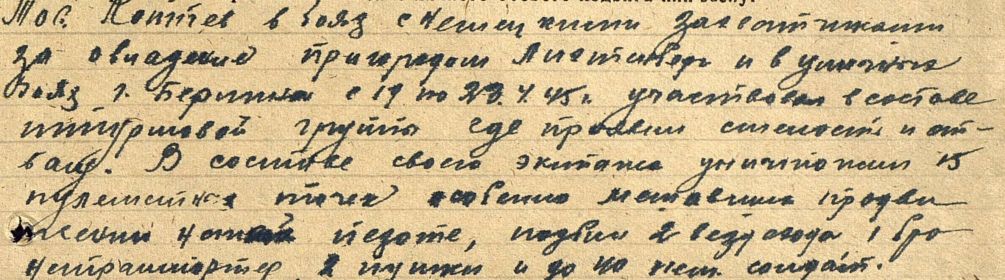 Тов. Коптев в боях с немецкими захватчиками
за овладение пригородом и в уличных
боях г. Берлина с 19 по 23.4.45 г. участвовал в составе
штурмовой группы где проявил смелость и от-
вагу. В составе своего экипажа уничтожил 15
пулеметных точек особенно мешавших продви
жению нашей пехоте, подбил 2 вездехода 1 бро
нетранспортер 2 пушки и до 40 нем. солдат.